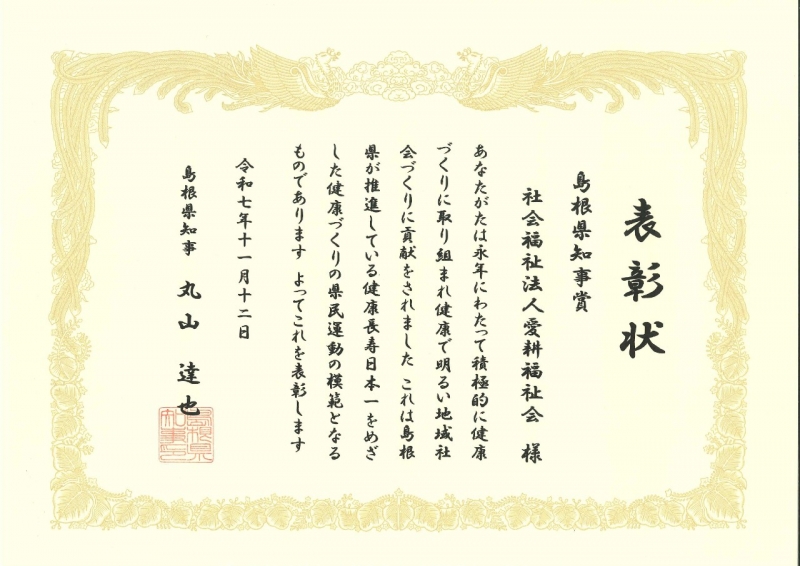 表彰状
島根県知事賞
社会福祉法人愛耕福祉会 様
あなたがたは永年にわたって積極的に健康
づくりに取り組まれ健康で明るい地域社
会づくりに貢献をされました これは島根
県が推進している健康長寿日本一をめざ
した健康づくりの県民運動の模範となる
ものであります よってこれを表彰します
令和七年十一月十二日
島根県知事 丸山 達也
島根県
知事印